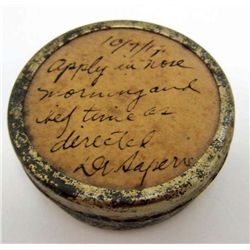 10/7/18
Apply in nose
morning and
bed time as
derected
Dr Saperre